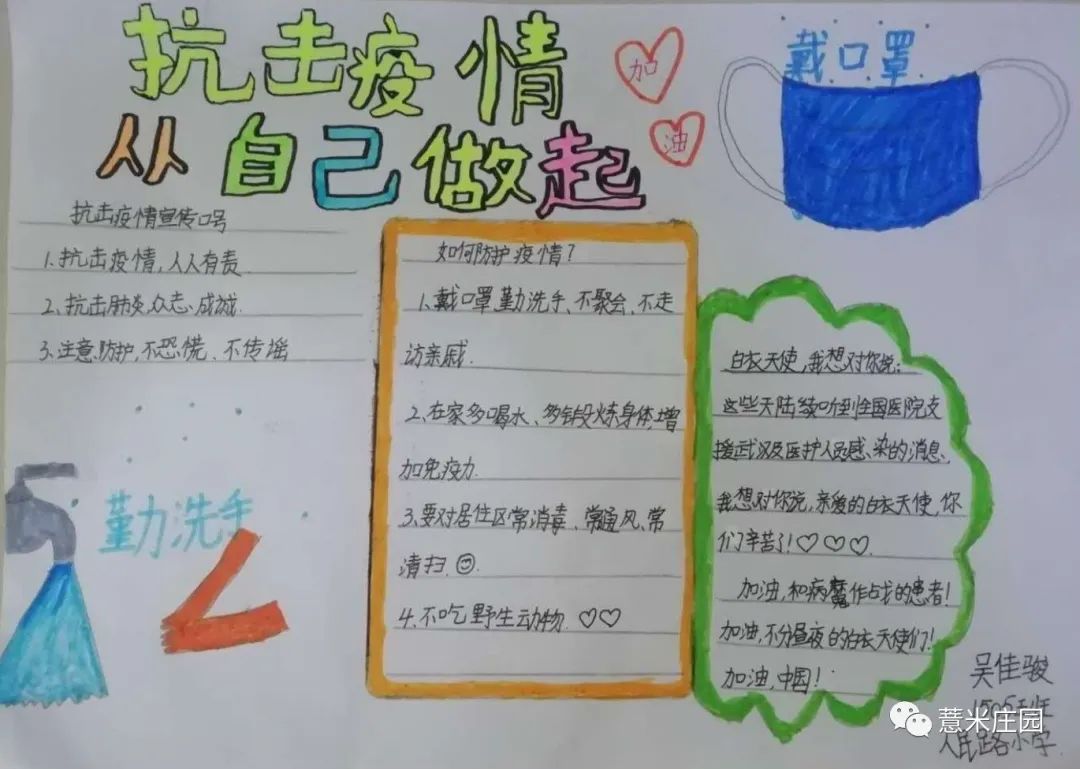 抗击疫情
从自己做起
加
油
戴口罩
抗击疫情宣传口号
1.抗击疫情,人人有责
2.抗击肺炎,众志成城.
3.注意防护,不恐慌、不传谣
勤洗手
如何防护疫情?
1.戴口罩勤洗手、不聚会、不走
访亲戚.
2.在家多喝水、多锻炼身体,增
加免疫力.
3.要对居住区常消毒、常通风,常
清扫.
4.不吃野生动物.♡♡
白衣天使,我想对你说:
这些天陆续听到全国医院支
援武汉及医护人员感染的消息、
我想对你说,亲爱的白衣天使,你
们辛苦了!♡♡♡.
加油,和病魔作占戈的患者!
加油,不分昼夜的白衣天使们!
加油,中国!
吴佳骏
人民路小学.
薏米庄园